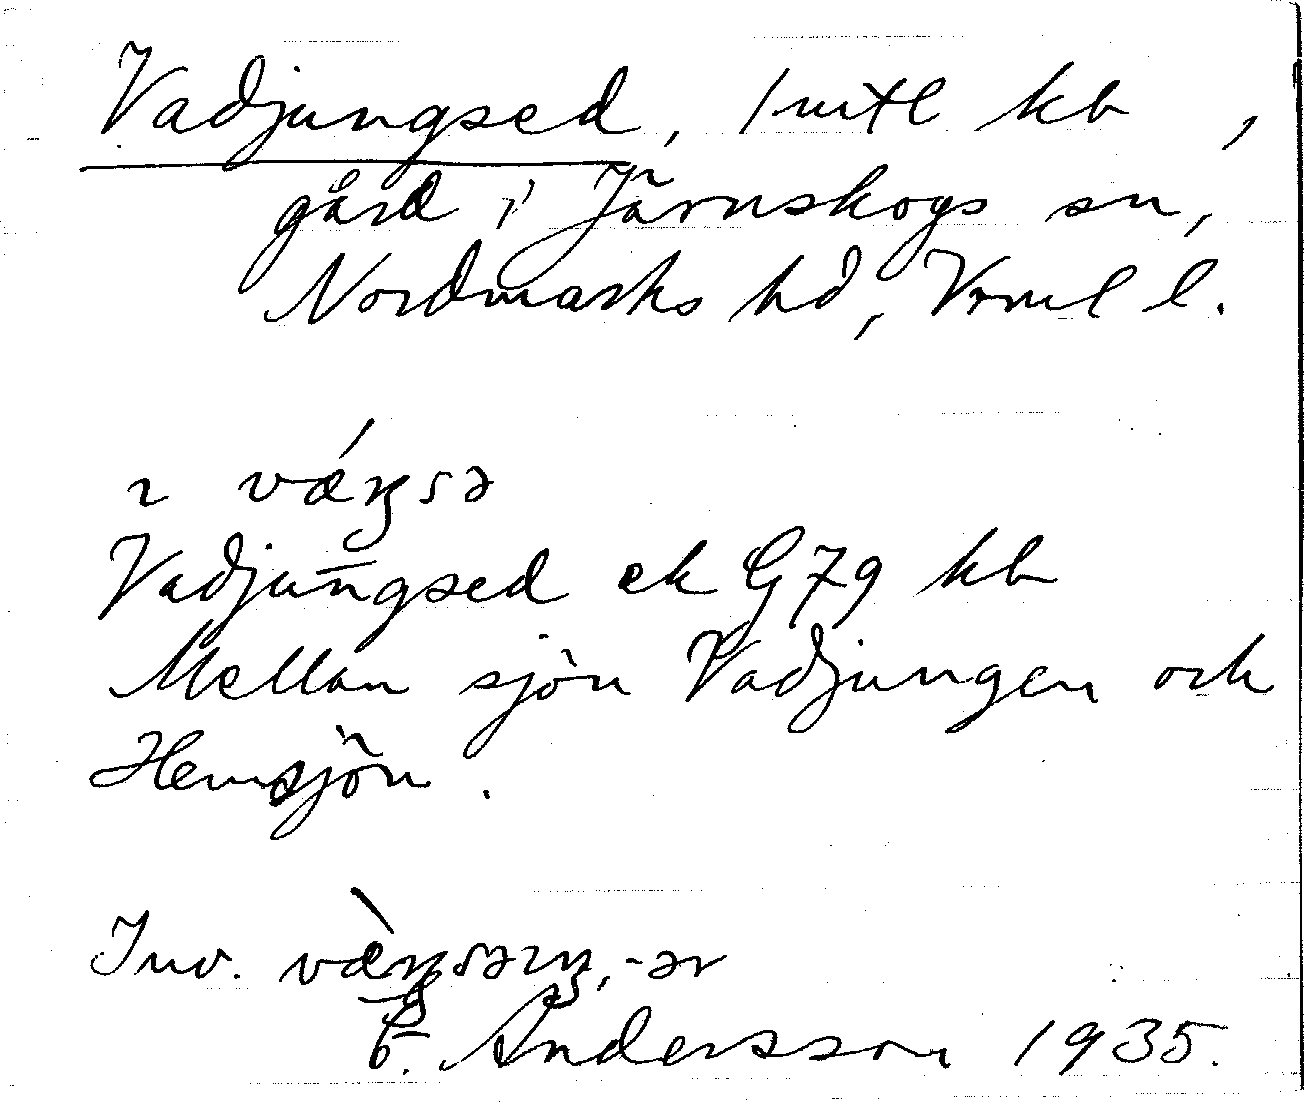 Vadjungsed, 1 mtl kb,
gård i Järnskogs sn,
Nordmarks hd, Vrml l.
ı vǽŋsə
Vadjungsed ek G79 kb
Mellan sjön Vadjungen och
Hemsjön.
Inv. , -ər
E. Andersson 1935.